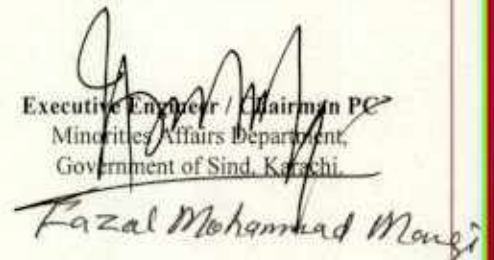 Executive Engineer / Chairman PC
Minorities Affairs Department,
Government of Sind, Karachi.
Fazal Mohammad Mangi